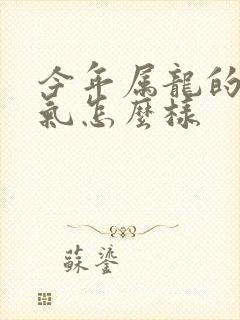 今年属龍的
氣怎麼樣
蘇鎏